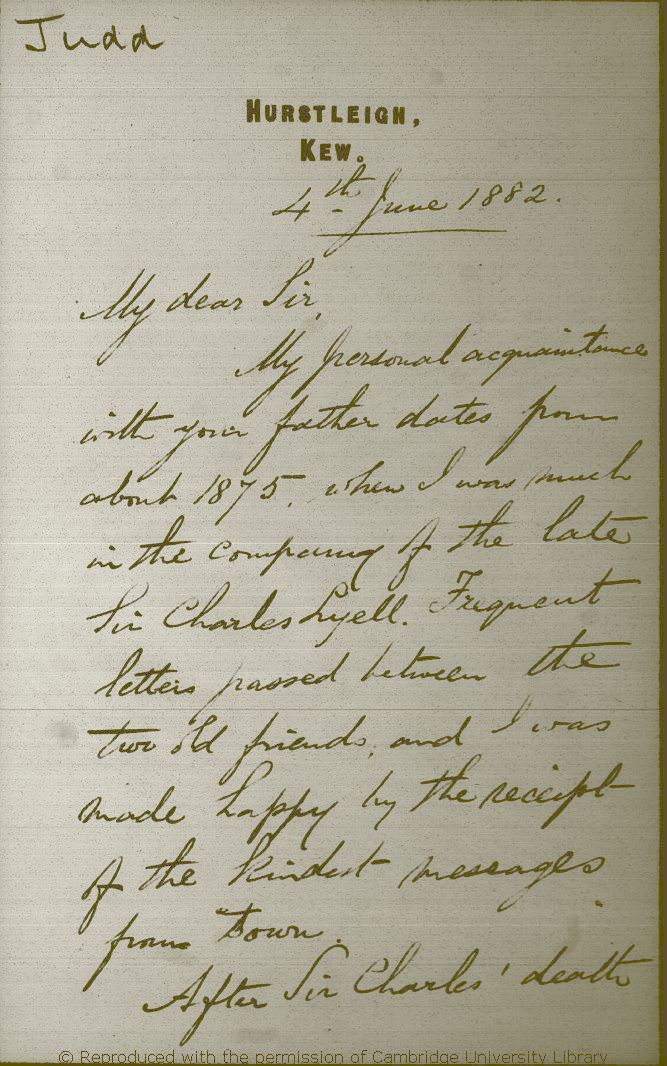 Judd
HURSTLEIGH,
KEW.
4th June 1882.
My dear Sir,
My personal acquaintance
with your father dates from
about 1875, when I was much
in the company of the late
Sir Charles Lyell. Frequent
letters passed between the
two old friends, and I was
made happy by the receipt
of the kindest messages
from Down.
After Sir Charles' death
© Reproduced with the permission of Cambridge University Library